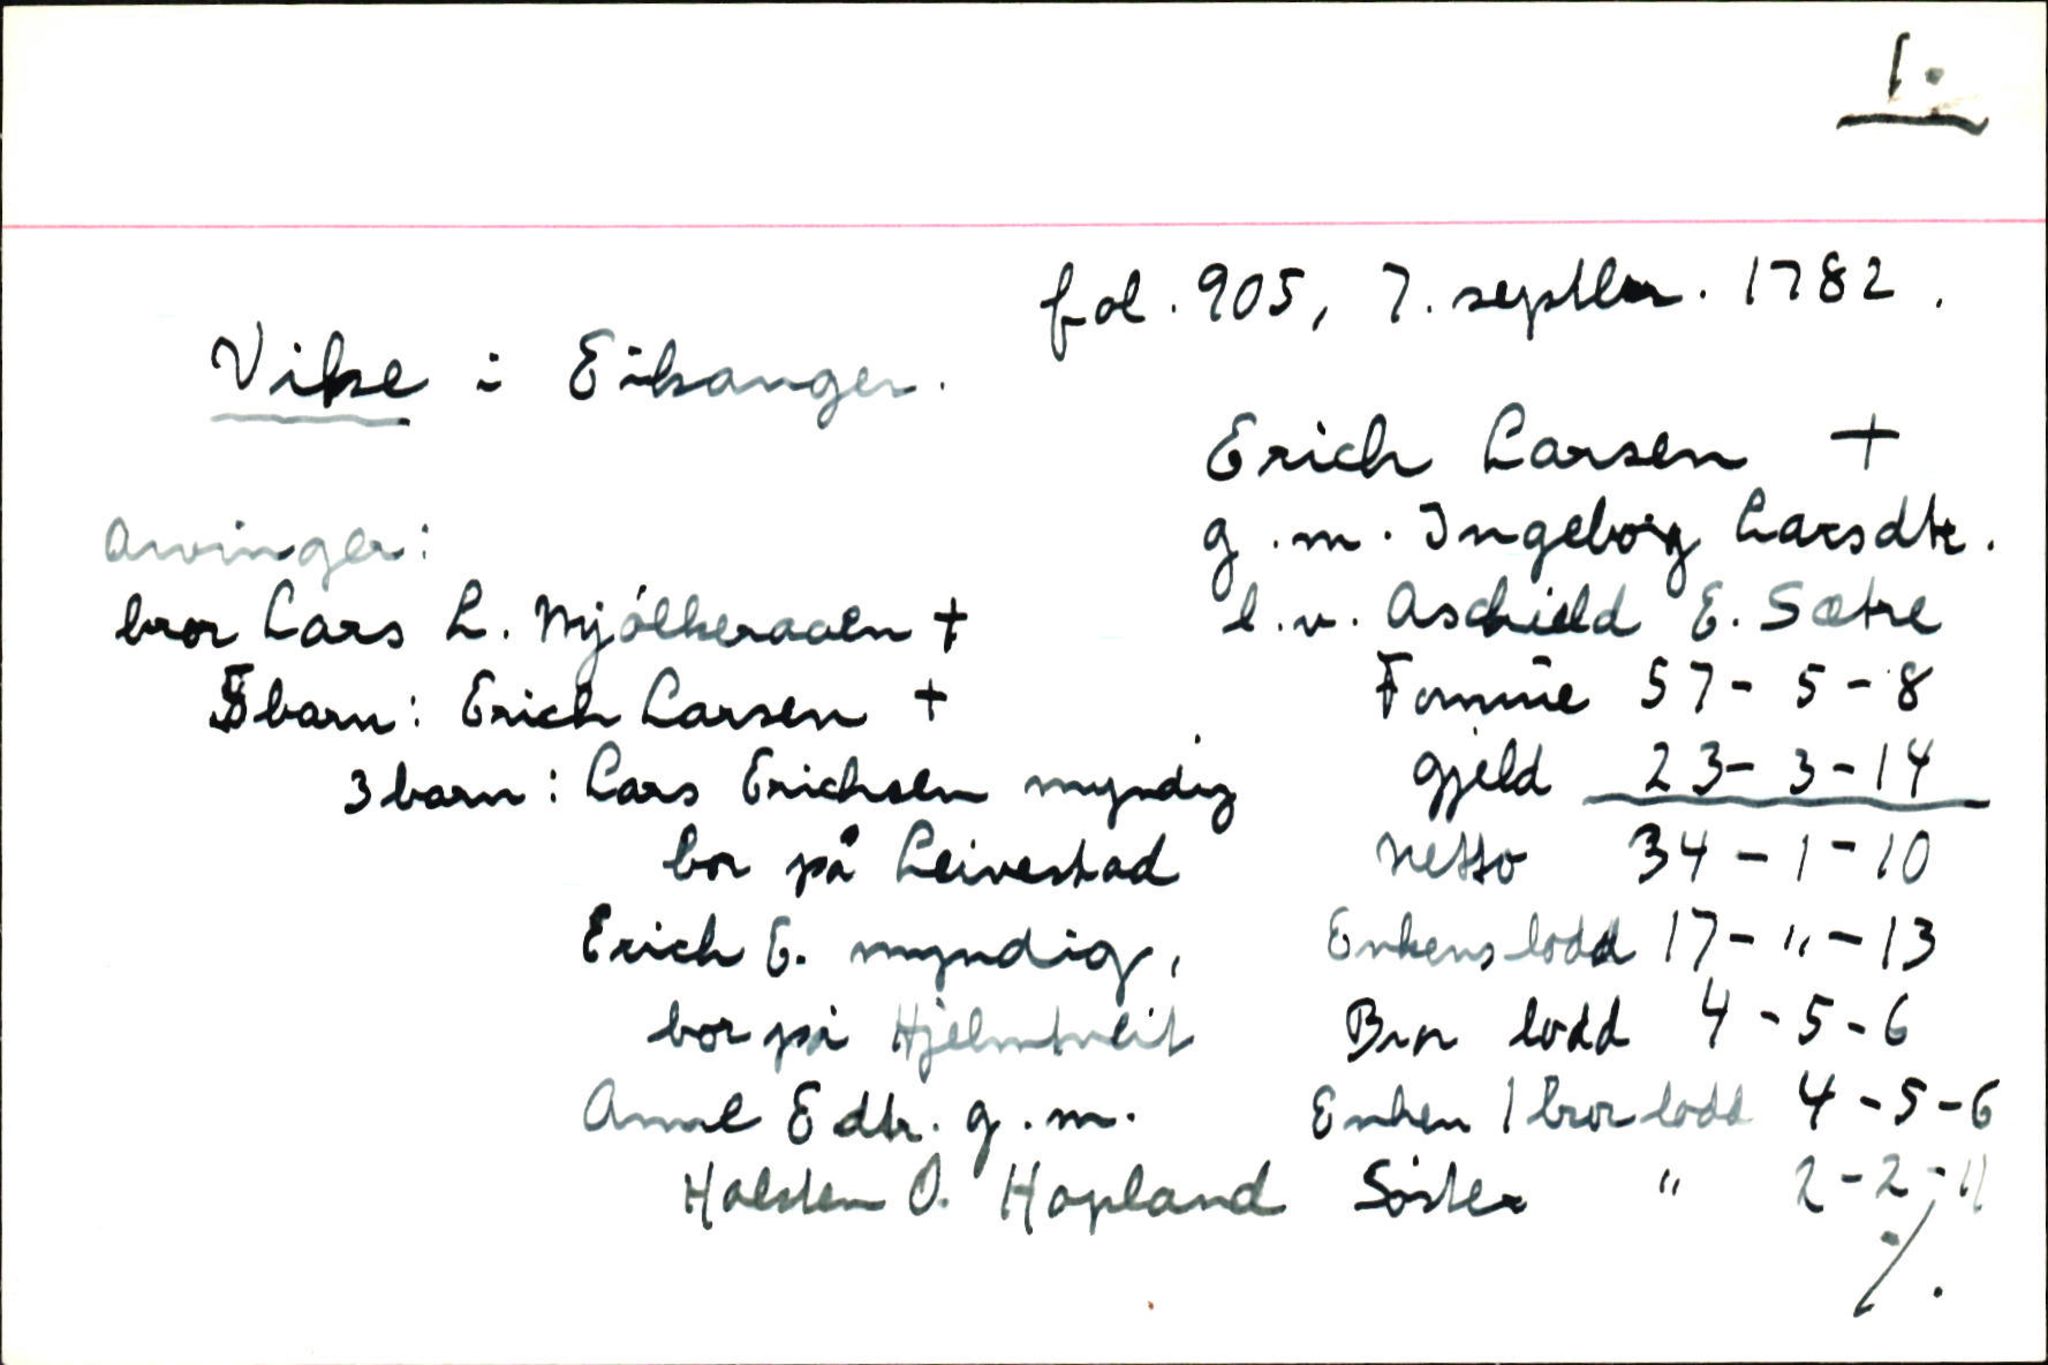 1.
fol. 905, 7. septbr. 1782.
Vikse i Eiksanger.
Erich Larsen +
g.m. Ingeborg Larsdtr.
l.v. Aschield E. Sætre
Formue 57-5-8
gjeld 23-3-14
netto 34-1-10
Enkens lodd 17-"-13
Bror lodd 4-5-6
Enken 1 bror lodd 4-5-6
Søster " 2-2-11
Arvinger:
bror Lars L. Mjölkeraaen +
5 barn: Erich Larsen +
3 barn: Lars Erichsen myndig
bor på Leivestad
Erich E. myndig,
bor på Hjelmtveit
Anne Edtr. g.m.
Holsten O. Hopland
./.